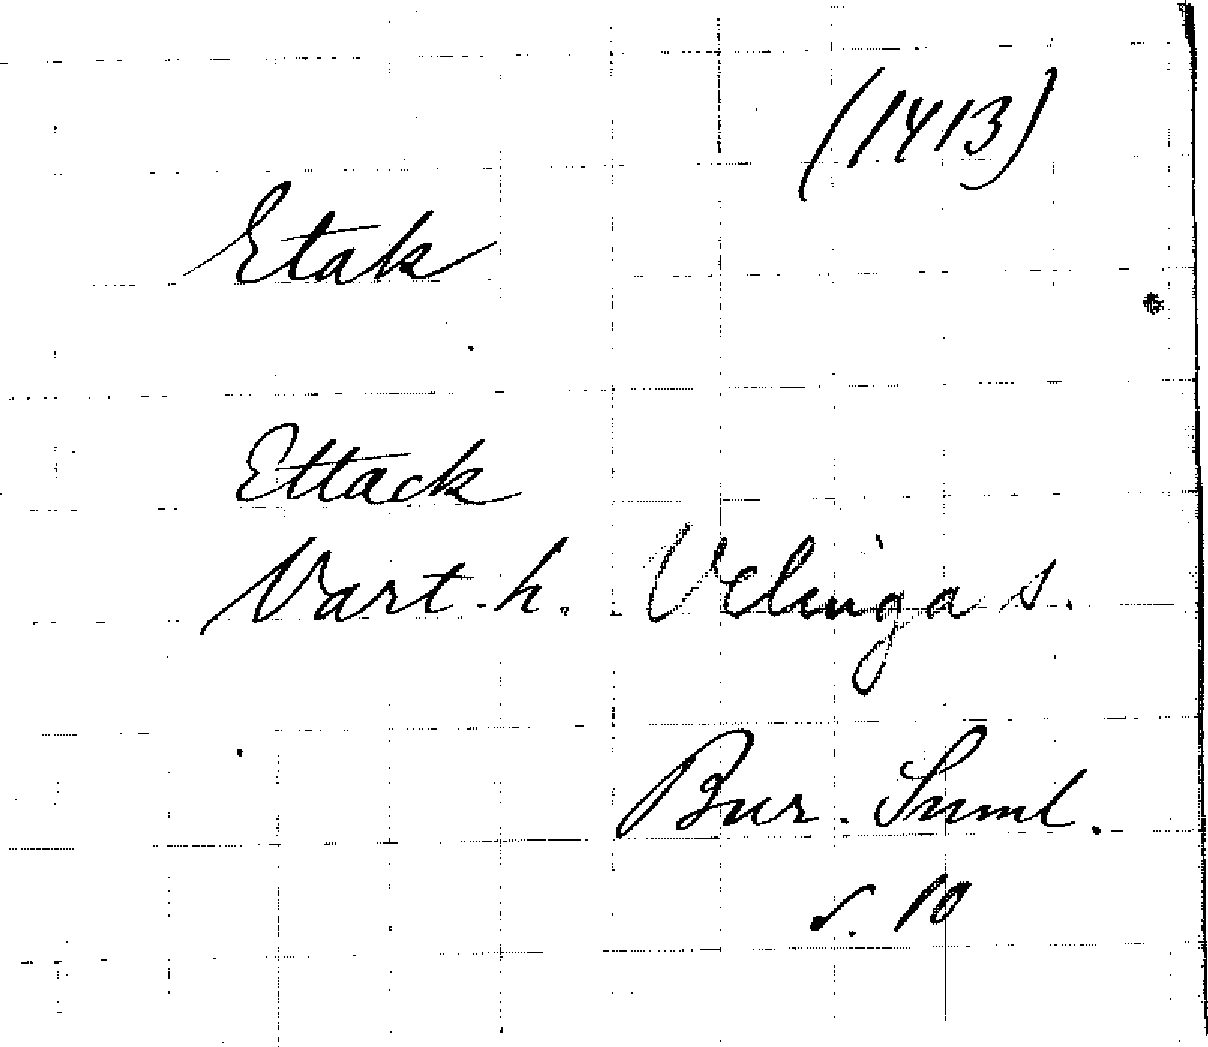 (1413)
Etak
Ettack
Vart. h. Velinga s.
Bur. Saml.
s. 10